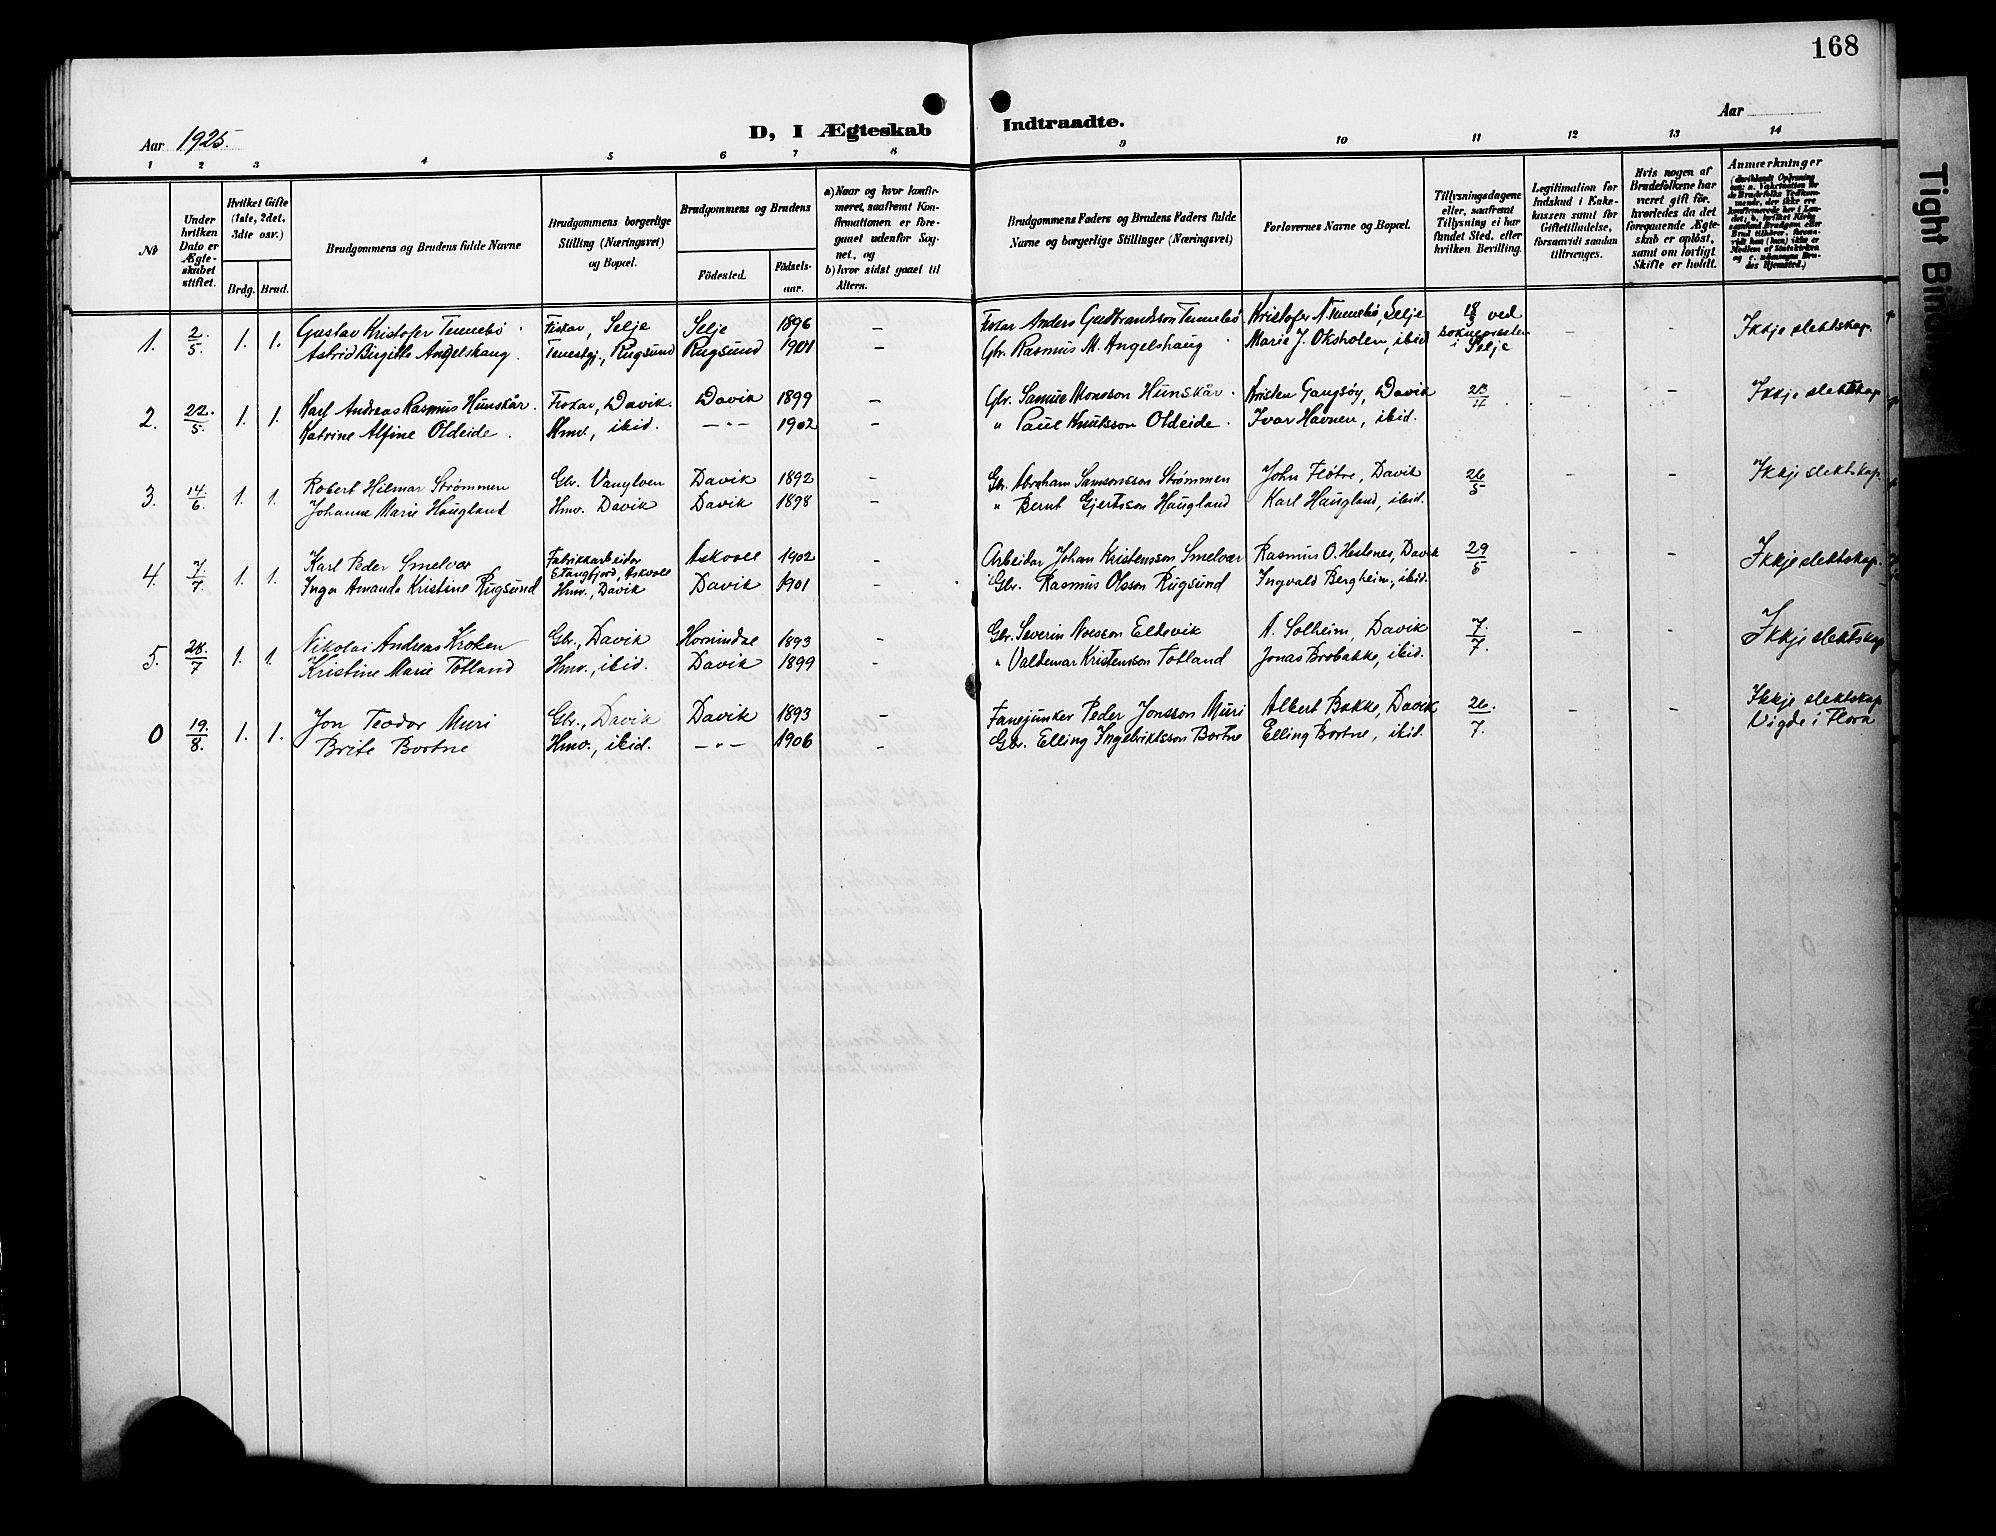 168
Aar 1925.
D, I Ægteskab Indtraadte.
Aar
1 2 3 4 5 6 7 8 9 10 11 12 13 14
No
Under hvilken Dato er Ægteskabet stiftet.
Hvilket Gifte (1ste, 2det, 3die osv.)
Brdg. Brud.
Brudgommens og Brudens fulde Navne
Brudgommens borgerlige Stilling (Næringsvei) og Bopæl.
Brudgommens og Brudens
Födested. Födselsaar.
a) Naar og hvor konfirmeret, saafremt Konfirmationen er foregaaet udenfor Sognet, og
b) hvor sidst gaaet til Alters.
Brudgommens Faders og Brudens Faders fulde Navne og borgerlige Stillinger (Næringsvei)
Forlovernes Navne og Bopæl.
Tillysningsdagene eller, saafremt Tillysning ei har fundet Sted, efter hvilken Bevilling.
Legitimation for Indskud i Enkekassen samt for Giftetilladelse, forsaavidt saadan tiltrænges.
Hvis nogen af Brudefolkene har været gift før, hvorledes da det foregaaende Ægteskab er opløst, samt om lovligt Skifte er holdt.
Anmærkninger
1. 2/5. 1. 1. Gustav Kristofer Tennebö. Fiskar, Selje Selje 1896 – Fiskar Anders Gudbrandsson Tennebö Kristofer Tennebö, Selje 18/3 ved Ikkje slektskap.
Astrid Birgitte Angelshaug. Tenestgj., Rugsund Rugsund 1901 – Gbr. Rasmus M. Angelshaug Marie J. Oksholen, ibid soknepresten i Selje
2. 22./5. 1. 1. Karl Andreas Rasmus Hunskår. Fiskar, Davik. Davik 1899 – Gbr. Samuel Monsson Hunskår. Kristen Gangsöy, Davik – – Ikkje slektskap
Katrine Alfine Oldeide. Hmv., ibid. –"– 1902 – " Paul Knutsson Oldeide. Ivar Havnen, ibid.
3. 14/6. 1. 1. Robert Hilmar Strømmen Gbr. Vanylven Davik 1892 – Gbr. Abraham Samsonsson Strømmen John Flötre, Davik 26/5 – – Ikkje slektskap.
Johanne Marie Haugland Hmv. Davik Davik 1898 – " Bernt Gjertsson Haugland Karl Haugland, ibid.
4. 7/7. 1. 1. Karl Peder Smelvær Fabrikkarbeidar Stangfjord, Askvoll Askvoll 1902 – Arbeidar Johan Kristensson Smelvær Rasmus O. Hestenes, Davik 29/5 – – Ikkje slektskap.
Inga Amanda Kristine Rugsund Hmv., Davik Davik 1901 – Gbr. Rasmus Olsson Rugsund Ingvald Bergheim, ibid.
5. 28./7 1. 1. Nikolai Andreas Kroken Gbr., Davik Hornindal 1893 – Gbr. Severin Eldevik A. Solheim, Davik 7./7. – – Ikkje slektskap
Kristine Marie Totland Hmv., ibid. Davik 1899 – " Valdemar Kristensson Totland Jonas Brobakke, ibid.
0 19./8. 1. 1. Jon Teodor Muri Gbr., Davik Davik 1893 – Fanejunker Peder Jonsson Muri Albert Bakke, Davik 26./7. – – Ikkje slektskap
Brite Bortne Hmv., ibid. –"– 1906 – Gbr. Elling Ingebriktsson Bortne Elling Bortne, ibid. Vigde i Flora
Tight Bin